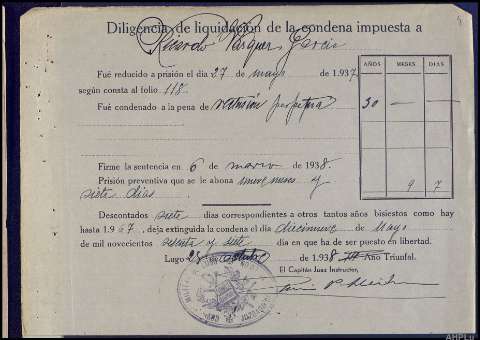 Diligencia de liquidación de la condena impuesta a
Ricardo Vázquez García
Fué reducido a prisión el día 27 de mayo de 1.937
según consta al folio 118.
Fué condenado a la pena de reclusión perpetua
AÑOS MESES DIAS
30 — —
Firme la sentencia en 6 de marzo de 1938.
Prisión preventiva que se le abona nueve meses y
siete días.
9 7
Descontados siete días correspondientes a otros tantos años bisiestos como hay
hasta 1.967, deja extinguida la condena el día diecinueve de Mayo
de mil novecientos sesenta y siete día en que ha de ser puesto en libertad.
Lugo 28 de octubre de 1.938 III Año Triunfal.
El Capitán Juez Instructor,
AHPLu